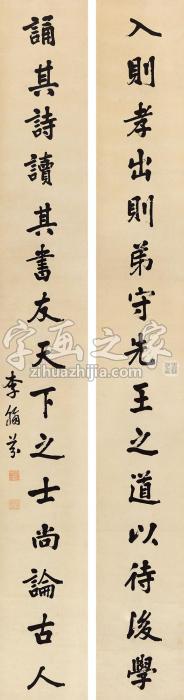 入則孝出則弟守先王之道以待後學
誦其詩讀其書友天下之士尚論古人
李
字画之家
zihuazhijia.com